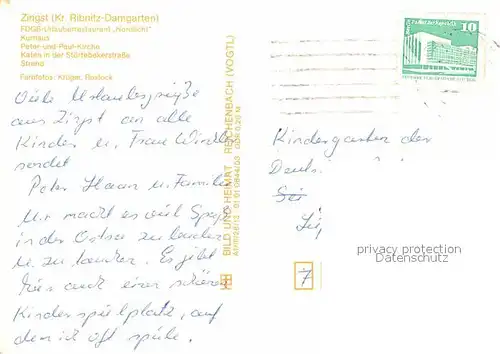 Zingst (Kr. Ribnitz-Damgarten)
FDGB-Urlauberrestaurant „Nordlicht"
Kurhaus
Peter-und-Paul-Kirche
Katen in der Störtebekerstraße
Strand
Farbfotos: Krüger, Rostock
BILD UND HEIMAT REICHENBACH (VOGTL)
10
Viele Urlaubsgrüße
aus Zingst an alle
Kinder u. Frau
sendet
Peter Haan u. Familie
Mir macht es viel Spaß
in der Ostsee zu baden
u. zu Es gibt
hier auch einen schönen
Kinderspielplatz, auf
dem ich oft spiele.
Kindergarten der
Deuts
privacy protection
Datenschutz
7